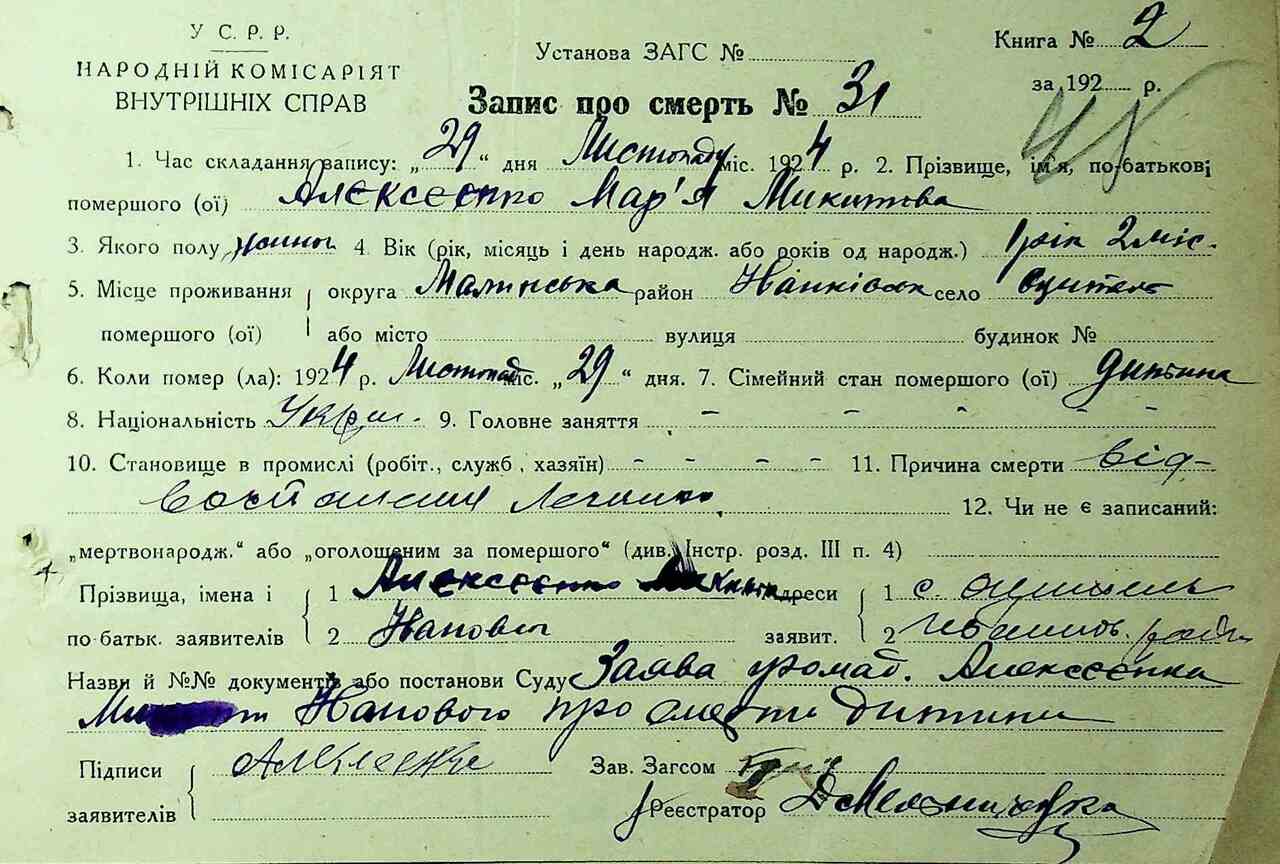 У С. Р. Р.
НАРОДНІЙ КОМІСАРІЯТ
ВНУТРІШНІХ СПРАВ
Установа ЗАГС №
Книга № 2
за 192 р.
48
Запис про смерть № 31
1. Час складання запису: „29“ дня Листопаду міс. 1924 р. 2. Прізвище, ім'я, по-батькові
помершого (ої) Алєксєєнко Мар'я Микитова
3. Якого полу жіноч 4. Вік (рік, місяць і день народж. або років од народж.) 1 рік 2 міс.
5. Місце проживання округа Малинська район село
помершого (ої) або місто вулиця будинок №
6. Коли помер (ла): 1924 р. Листопад міс. „29“ дня. 7. Сімейний стан помершого (ої) дитина
8. Національність Укр. 9. Головне заняття - - - - -
10. Становище в промислі (робіт., служб., хазяїн) - - - - 11. Причина смерти від
12. Чи не є записаний:
„мертвонародж.“ або „оголошеним за помершого“ (див. Інстр. розд. III п. 4)
Прізвища, імена і 1 Алєксєєнко Микита адреси 1 с.
по-батьк. заявителів 2 заявит. 2
Назви й №№ документів або постанови Суду Заява громад. Алєксєєнка
про смерть дитини
Підписи Алексеенко Зав. Загсом
заявителів Реєстратор